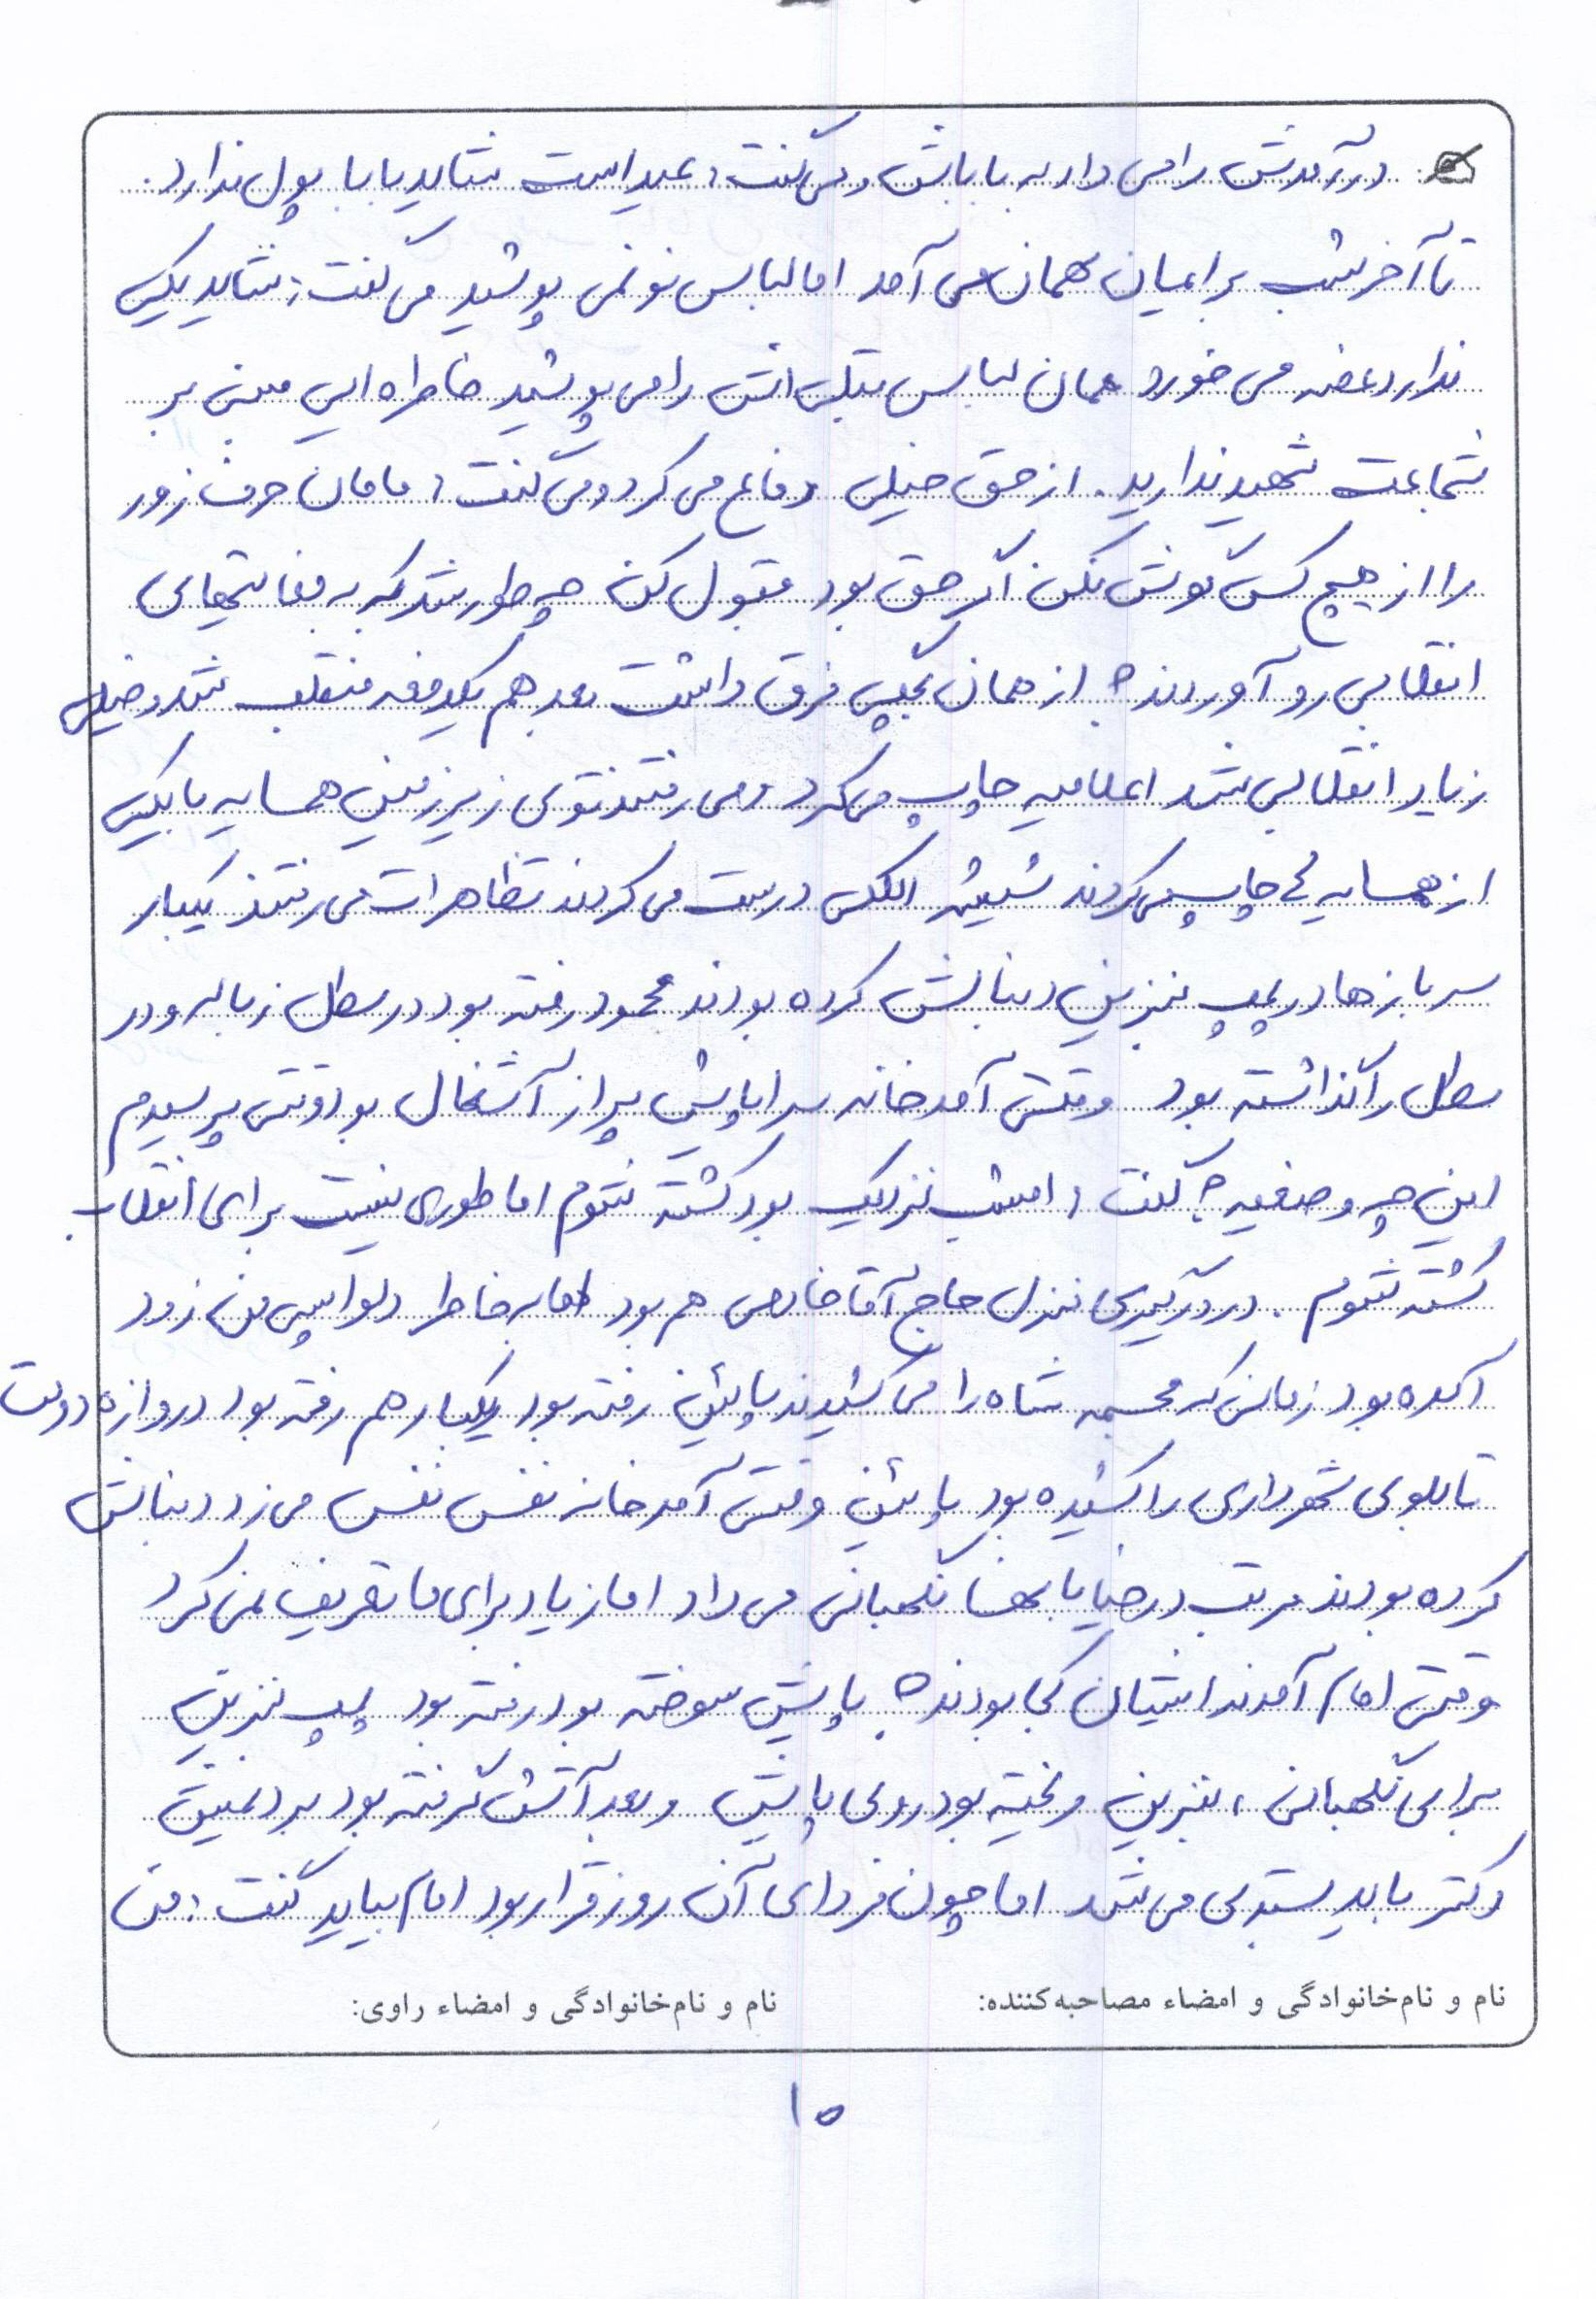 درآمدش را می داد به باباش و می گفت: عید است شاید بابا پول ندارد.
تا آخر شب برایمان مهمان می آمد اما لباس نو نمی پوشید می گفت: شاید یکی
ندارد غصه می خورد همان لباس تمیزش را می پوشید خاطره ایی مبنی بر
شجاعت شهید ندارید. از حق خیلی دفاع می کرد و می گفت: مامان حرف زور
را از هیچ کس گوش نکن اگر حق بود قبول کن چه طور شد که به فعالیتهای
انقلابی رو آوردند؟ از همان بچگی فرق داشت بعد هم یکدفعه منقلب شد و خیلی
زیاد انقلابی شد اعلامیه چاپ می کرد و می رفتند توی زیرزمین همسایه با یکی
از همسایه ها چاپ می کردند شیشه الکل درست می کردند تظاهرات می رفتند یکبار
سربازها در پمپ بنزین دنبالش کرده بودند محمود رفته بود در سطل زباله و در
سطل را گذاشته بود وقتی آمد خانه سراپایش پر از آشغال بود وقتی پرسیدم
این چه وضعیه؟ گفت: امشب نزدیک بود کشته شوم اما طوری نیست برای انقلاب
کشته شوم. در درگیری منزل حاج آقا خادمی هم بود اما به خاطر دلواپسی من زود
آمده بود زمانی که مجسمه شاه را می کشیدند پائین رفته بود یکبار هم رفته بود دروازه دولت
تابلوی شهرداری را کشیده بود پائین وقتی آمد خانه نفس نفس می زد دنبالش
کرده بودند مرتب در خیابانها نگهبانی می داد اما زیاد برای ما تعریف نمی کرد
وقتی امام آمدند ایشان کجا بودند؟ پایش سوخته بود رفته بود پمپ بنزین
برای نگهبانی، بنزین ریخته بود روی پایش و بعد آتش گرفته بود بردیمش
دکتر باید بستری می شد اما چون فردای آن روز قرار بود امام بیاید گفت: من
نام و نام‌خانوادگی و امضاء مصاحبه‌کننده: نام و نام‌خانوادگی و امضاء راوی:
۱۵